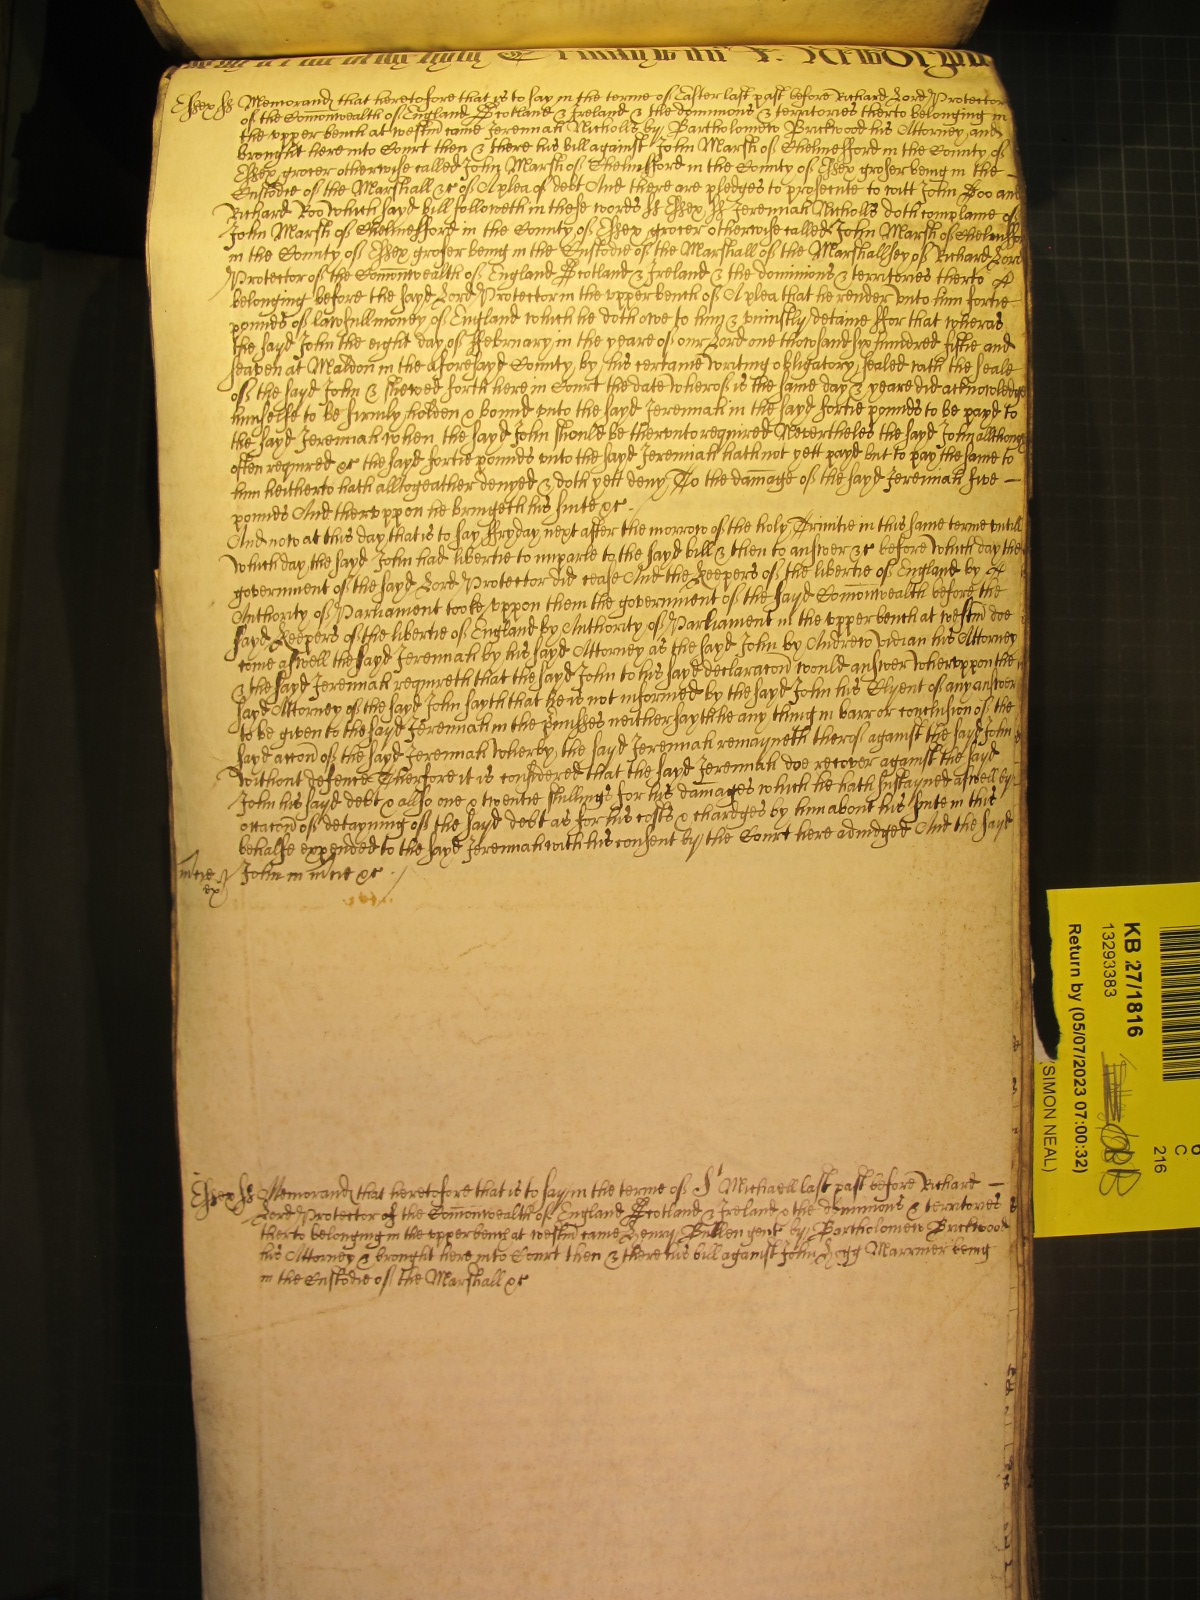 Essex ss Memorand that heretofore that is to say in the terme of Easter last past before Richard Lord Protector
of the Comonwealth of England Scotland & Ireland & the dominions & territories therto belonging in
the upper bench at westm came Jeremiah Nicholls by Bartholomew Brickwood his Attorney and
brought here into Court then & there his bill against John Marsh of Chelmesford in the County of
Essex grocer otherwise called John Marsh of Chelmsford in the County of Essex groser being in the —
Custodie of the Marshall &c of A plea of debt And there are pledges to prosecute to witt John Doo and
Richard Roo Which sayd bill followeth in these words ss Essex ss Jeremiah Nicholls doth complaine of
John Marsh of Chelmesford in the County of Essex grocer otherwise called John Marsh of Chelmsford
in the County of Essex groser being in the Custodie of the Marshall of the Marshallsey of Richard Lord
Protector of the Comonwealth of England Scotland & Ireland & the dominions & territories therto
belonging before the sayd Lord Protector in the upper bench of A plea that he render unto him fortie
pounds of lawfull money of England which he doth owe to him & uniustly detaine ffor that wheras
the sayd John the eight day of ffebruary in the yeare of our Lord one thowsand six hundred fiftie and
seaven at Maldon in the aforesayd County by his certaine writing obligatory sealed with the seale
of the sayd John & shewed forth here in Court the date wherof is the same day & yeare did acknowledge
himselfe to be firmly holden & bound unto the sayd Jeremiah in the sayd fortie pounds to be payd to
the sayd Jeremiah when the sayd John should be therunto required Nevertheles the sayd John allthough
often required &c the sayd fortie pounds unto the sayd Jeremiah hath not yett payd but to pay the same to
him heitherto hath alltogeather denyed & doth yett deny To the damage of the sayd Jeremiah five —
pounds And theruppon he bringeth his suite &c.
And now at this day that is to say ffryday next after the morrow of the holy Trinitie in this same terme untill
which day the sayd John had libertie to imparle to the sayd bill & then to answer &c before which day the
government of the sayd Lord Protector did cease And the Keepers of the libertie of England by
Authority of Parliament tooke uppon them the government of the sayd Comonwealth before the
sayd Keepers of the libertie of England by Authority of Parliament in the upper bench at westm doe
come aswell the sayd Jeremiah by his sayd Attorney as the sayd John by Andrew Vidian his Attorney
& the sayd Jeremiah requireth that the sayd John to his sayd declaracon would answer wheruppon the
sayd Attorney of the sayd John sayth that he is not informed by the sayd John his Clyent of any answer
to be given to the sayd Jeremiah in the pmisses neither sayth he any thing in barr or conclusion of the
sayd accon of the sayd Jeremiah wherby the sayd Jeremiah remayneth therof against the sayd John
without defence Therfore it is considered that the sayd Jeremiah doe recover against the sayd
John his sayd debt & allso one & twentie shillings for his damages which he hath sustayned aswell by
occacon of detayning of the sayd debt as for his costs & chardges by him about his suite in this
behalfe expended to the sayd Jeremiah with his consent by the Court here adiudged And the sayd
John in mcie &c.
mcie
ex
Essex ss Memorand that heretofore that is to say in the terme of St Michaell last past before Richard —
Lord Protector of the Comonwealth of England Scotland & Ireland & the dominions & territories
therto belonging in the upper bench at westm came Henry Pullen gent by Bartholomew Brickwood
his Attorney & brought here into Court then & there his bill against John Hogg Marriner being
in the Custodie of the Marshall &c
KB 27/1816
13293383
Return by (05/07/2023 07:00:32)
(SIMON NEAL)
216
C